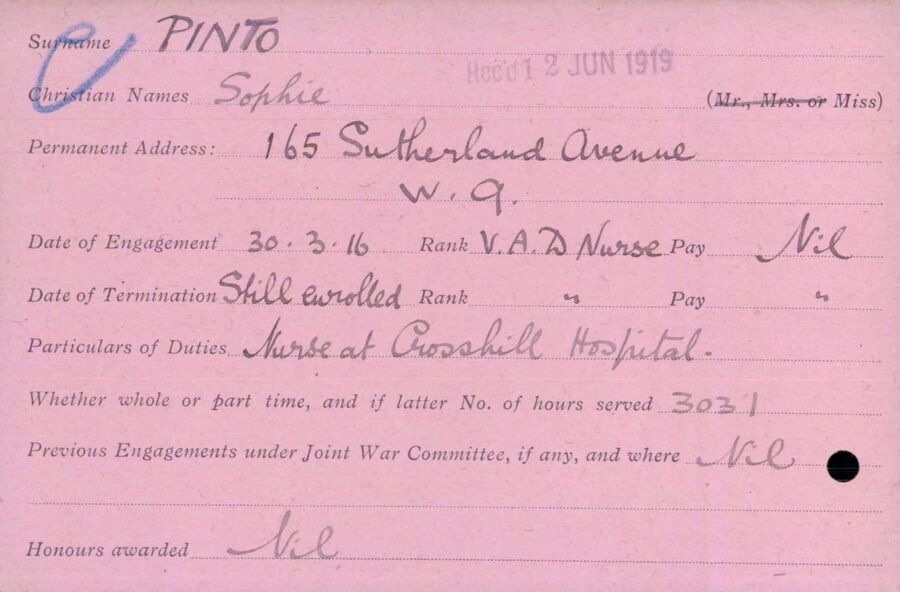 Surname PINTO
Rec'd 12 JUN 1919
Christian Names Sophie (Mr., Mrs. or Miss)
Permanent Address: 165 Sutherland Avenue
W. 9.
Date of Engagement 30.3.16 Rank V.A.D Nurse Pay Nil
Date of Termination Still enrolled Rank " Pay "
Particulars of Duties Nurse at Crosshill Hospital.
Whether whole or part time, and if latter No. of hours served 3031
Previous Engagements under Joint War Committee, if any, and where Nil
Honours awarded Nil